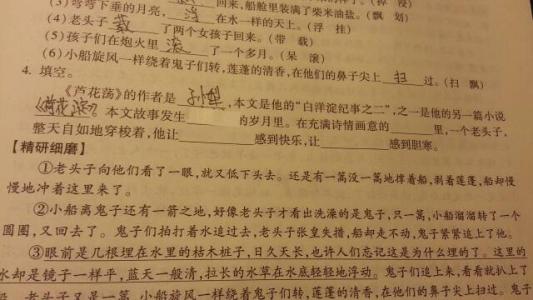 (3)弯弯下垂的月亮, 浮 在水一样的天上。(浮 挂)
回来,船舱里装满了柴米油盐。(飘 划)
(4)老头子 载 了两个女孩子回来。(带 载)
(5)孩们在炮火里 滚 了一个多月。(呆 滚)
(6)小船旋风一样绕着鬼子们转,莲蓬的清香,在他们的鼻子尖上 扫 过。(扫 飘)
4. 填空。
《芦花荡》的作者是 孙犁 ,本文是他的“白洋淀纪事之二”,之一是他的另一篇小说
《荷花淀》。本文故事发生 的岁月里。在充满诗情画意的 里,一个老头子,
整天自如地穿梭着,他让 感到快乐,让 感到胆寒。
【精研细磨】
①老头子向他们看了一眼,就又低下头去。还是有一篙没一篙地撑着船,剥着莲蓬,船却慢
慢地冲着这里来了。
②小船离鬼子还有一箭之地,好像老头子才看出洗澡的是鬼子,只一篙,小船溜溜转了一个
圆圈,又回去了。鬼子们拍打着水追过去,老头子张皇失措,船却走不动,鬼子紧紧追上了他。
③眼前是几根埋在水里的枯木桩子,日久天长,也许人们忘记这是为什么埋的了。这里的
水却是镜子一样平,蓝天一般清,拉长的水草在水底轻轻地浮动。鬼子们追上来,看看就扒上了
船。老头子又是一篙,小船旋风一样绕着鬼子们转,莲蓬的清香,在他们的鼻子尖上扫过。鬼子